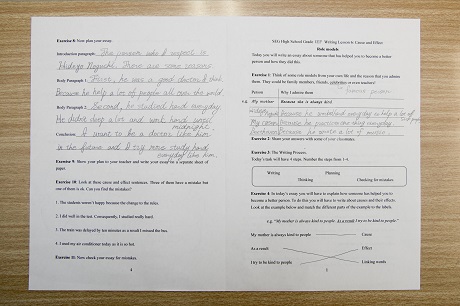 Exercise 8: Now plan your essay.
Introduction paragraph: The person who I respect is
Hideyo Noguchi. There are some reasons.
Body Paragraph 1: First, he was a good doctor
Because he help a lot of people all over the world
Body Paragraph 2: Second, he studied hard everyday.
He didn't sleep a lot and work hard until
midnight.
Conclusion: I want to be a doctor like him
in the future and I try more study hard
everyday like him.
Exercise 9: Show your plan to your teacher and write your essay on a separate sheet of
paper.
Exercise 10: Look at these cause and effect sentences. Three of them have a mistake but
one of them is ok. Can you find the mistakes?
1. The students weren't happy because the change to the rules.
2. I did well in the test. Consequently, I studied really hard.
3. The train was delayed by ten minutes as a result I missed the bus.
4. I used my air conditioner today as it is so hot.
Exercise 11: Now check your essay for mistakes.
4
High School Grade 1 Writing Lesson 6: Cause and Effect
Role models
Today you will write an essay about someone that has helped you to become a better
person and how they did this.
Exercise 1: Think of some role models from your own life and the reason that you admire
them. They could be family members, friends, celebrities or even teachers!
Person Why I admire them
e.g. My mother Because she is always kind.
Because he studied everyday
Because he wrote a lot of music.
Exercise 2: Share your answers with some of your classmates.
Exercise 3: The Writing Process.
Today's task will have 4 steps. Number the steps from 1-4.
Writing Planning
Thinking Checking for mistakes
Exercise 4: In today's essay you will have to explain how someone has helped you to
become a better person. To do this you will have to write about causes and their effects.
Look at the example below and match the different parts of the example to the labels.
e.g. "My mother is always kind to people. As a result I try to be kind to people."
My mother is always kind to people Cause
As a result Effect
I try to be kind to people Linking words
1